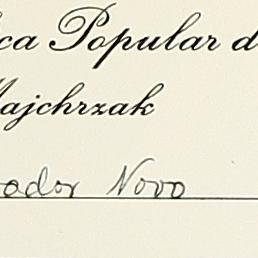 ca Popular d
Majchrzak
ador Novo